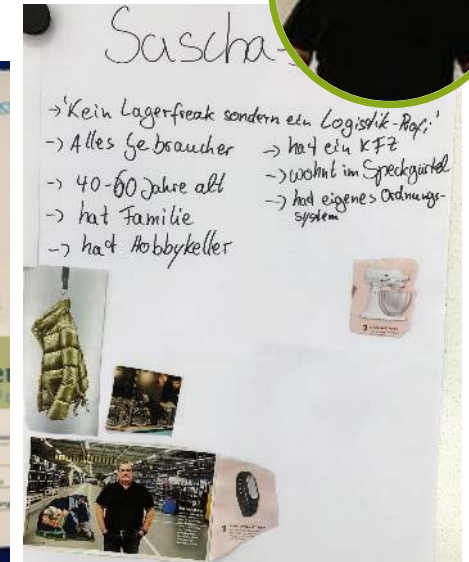 Sascha-
→ 'Kein Lagerfreak sondern ein Logistik-Profi'
-> Alles Gebraucher
-> 40-60 Jahre alt
-> hat Familie
-> hat Hobbykeller
-> hat ein KFZ
-> wohnt im Speckgürtel
-> hat eigenes Ordnungs-
system
3
1